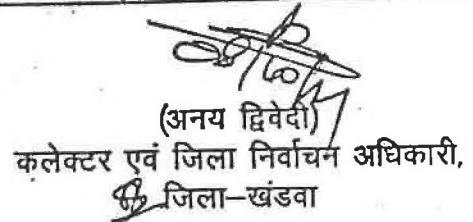 (अनय द्विवेदी)
कलेक्टर एवं जिला निर्वाचन अधिकारी,
जिला–खंडवा